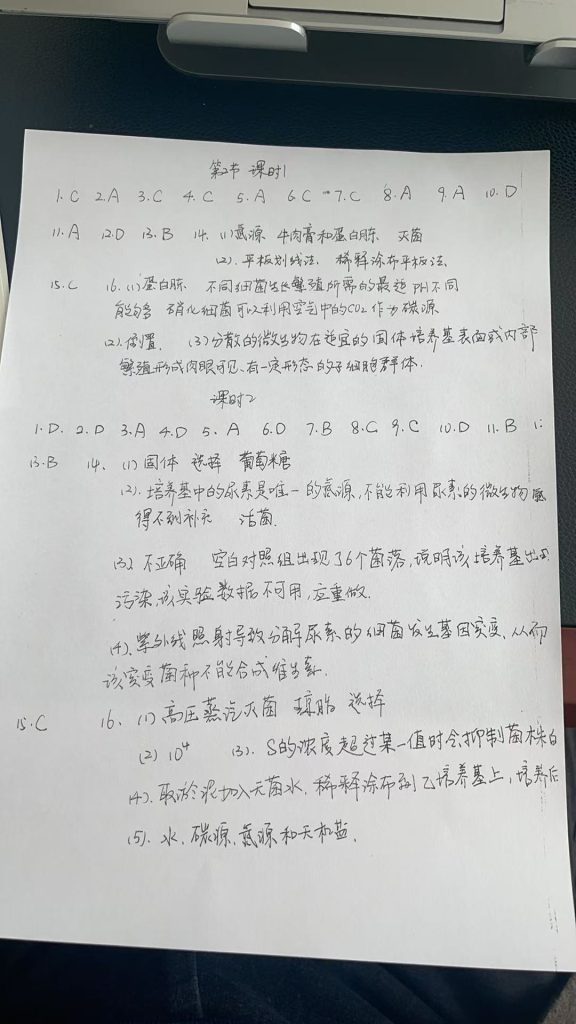 第2节 课时1
1.C 2.A 3.C 4.C 5.A 6.C 7.C 8.A 9.A 10.D
11.A 12.D 13.B 14. (1)氮源 牛肉膏和蛋白胨 灭菌
(2).平板划线法 稀释涂布平板法
15.C 16.(1)蛋白胨 不同细菌生长繁殖所需的最适PH不同
能够 硝化细菌可以利用空气中的CO2作为碳源
(2).倒置. (3)分散的微生物在适宜的固体培养基表面或内部
繁殖形成肉眼可见、有一定形态的子细胞群体.
课时2
1.D. 2.D 3.A 4.D 5.A 6.D 7.B 8.C 9.C 10.D 11.B 1
13.B 14. (1)固体 选择 葡萄糖
(2).培养基中的尿素是唯一的氮源,不能利用尿素的微生物
得不到补充 活菌.
(3) 不正确 空白对照组出现了6个菌落,说明该培养基出现
污染,该实验数据不可用,应重做.
(4).紫外线照射导致分解尿素的细菌发生基因突变,从而
该突变菌种不能合成维生素.
15.C 16. (1)高压蒸汽灭菌 琼脂 选择
(2) 10⁴ (3). S的浓度超过某一值时会抑制菌株
(4).取淤泥加入无菌水,稀释涂布到乙培养基上,培养后
(5).水、碳源、氮源和无机盐.